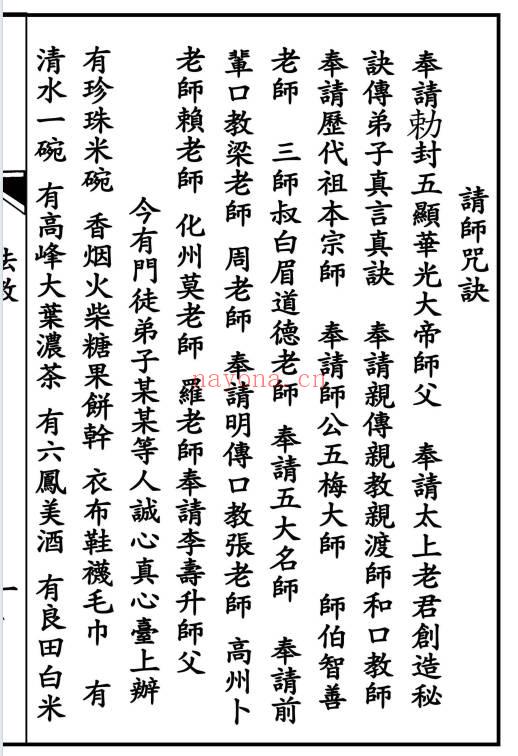 請師咒訣
奉請勅封五顯華光大帝師父 奉請太上老君創造秘
訣傳弟子真言真訣 奉請親傳親教親渡師和口教師
奉請歷代祖本宗師 奉請師公五梅大師 師伯智善
老師 三師叔白眉道德老師 奉請五大名師 奉請前
輩口教梁老師 周老師 奉請明傳口教張老師 高州卜
老師賴老師 化州莫老師 羅老師奉請李壽升師父
今有門徒弟子某某等人誠心真心臺上辦
有珍珠米碗 香烟火柴糖果餅幹 衣布鞋襪毛巾 有
清水一碗 有高峰大葉濃茶 有六鳳美酒 有良田白米
nayona.cn